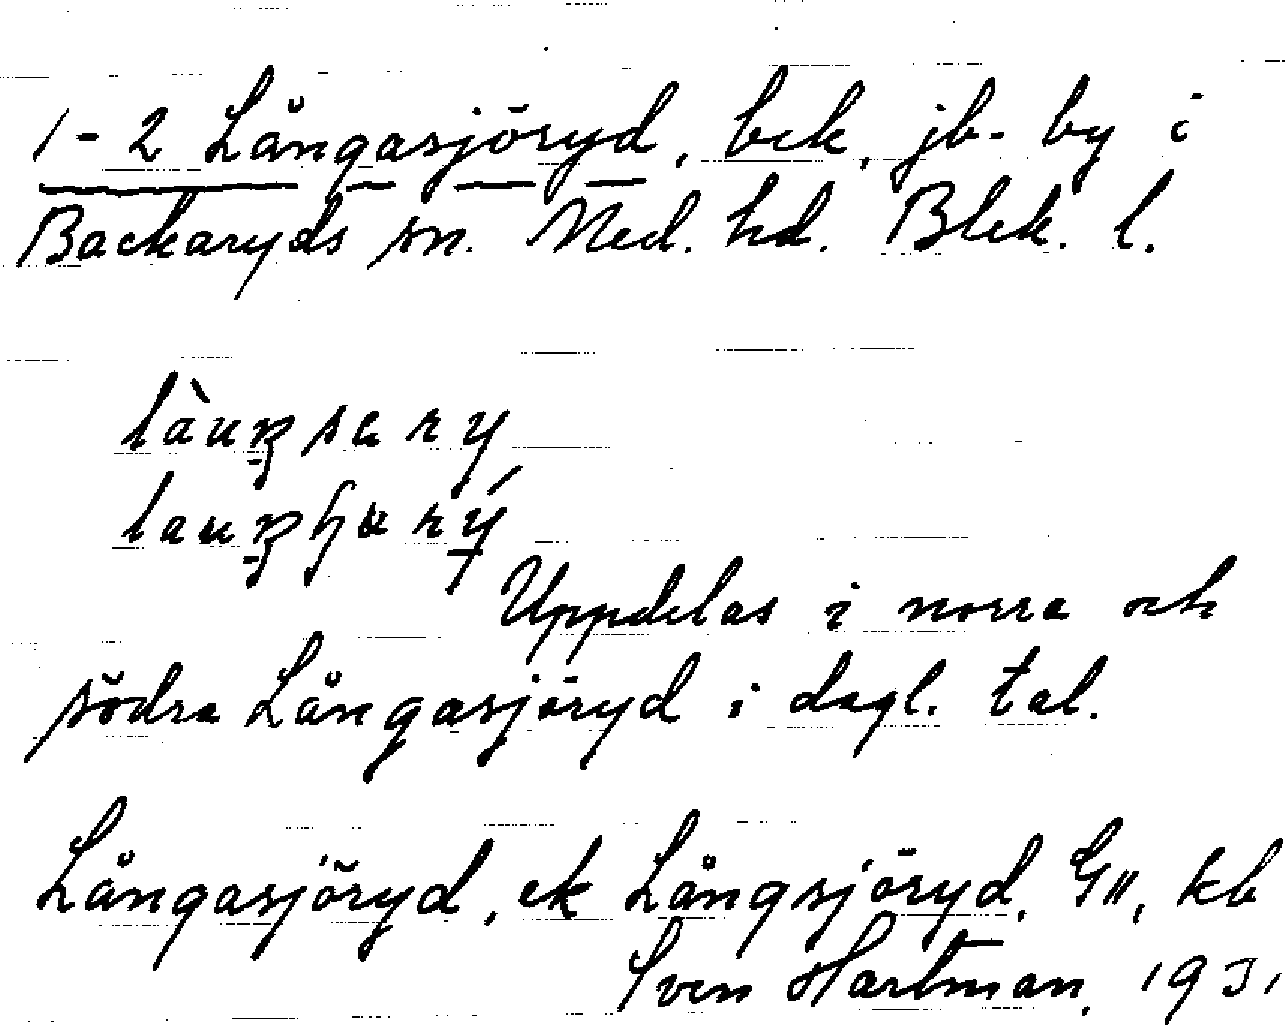 1-2 Långasjöryd, bek, jb- by i
Backaryds sn. Med. hd. Blek. l.
Uppdelas i norra och
södra Långasjöryd i dagl. tal.
Långasjöryd, ek Långsjöryd, G11, kb
Sven Hartman, 1931